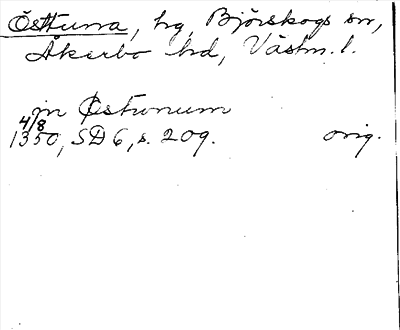 Östtuna, hg, Björskogs sn,
Åkerbo hd, Västm. l.
in Østunum
4/8
1350, SD 6, s. 209. orig.